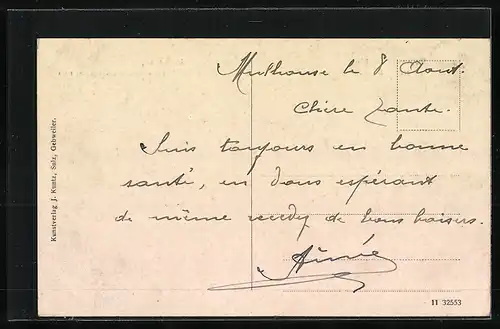 Mulhouse le 8 Aout.
Chère Tante.
Suis toujours en bonne
santé, en vous espérant
de même recevez de bons baisers.
Aimée
Kunstverlag J. Kuntz, Sulz, Gebweiler.
II 32553